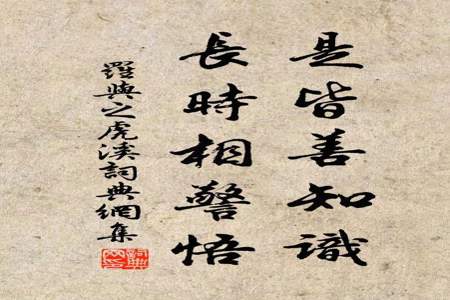 是皆善知識
長時相警悟
羅與之虎溪詞典網集